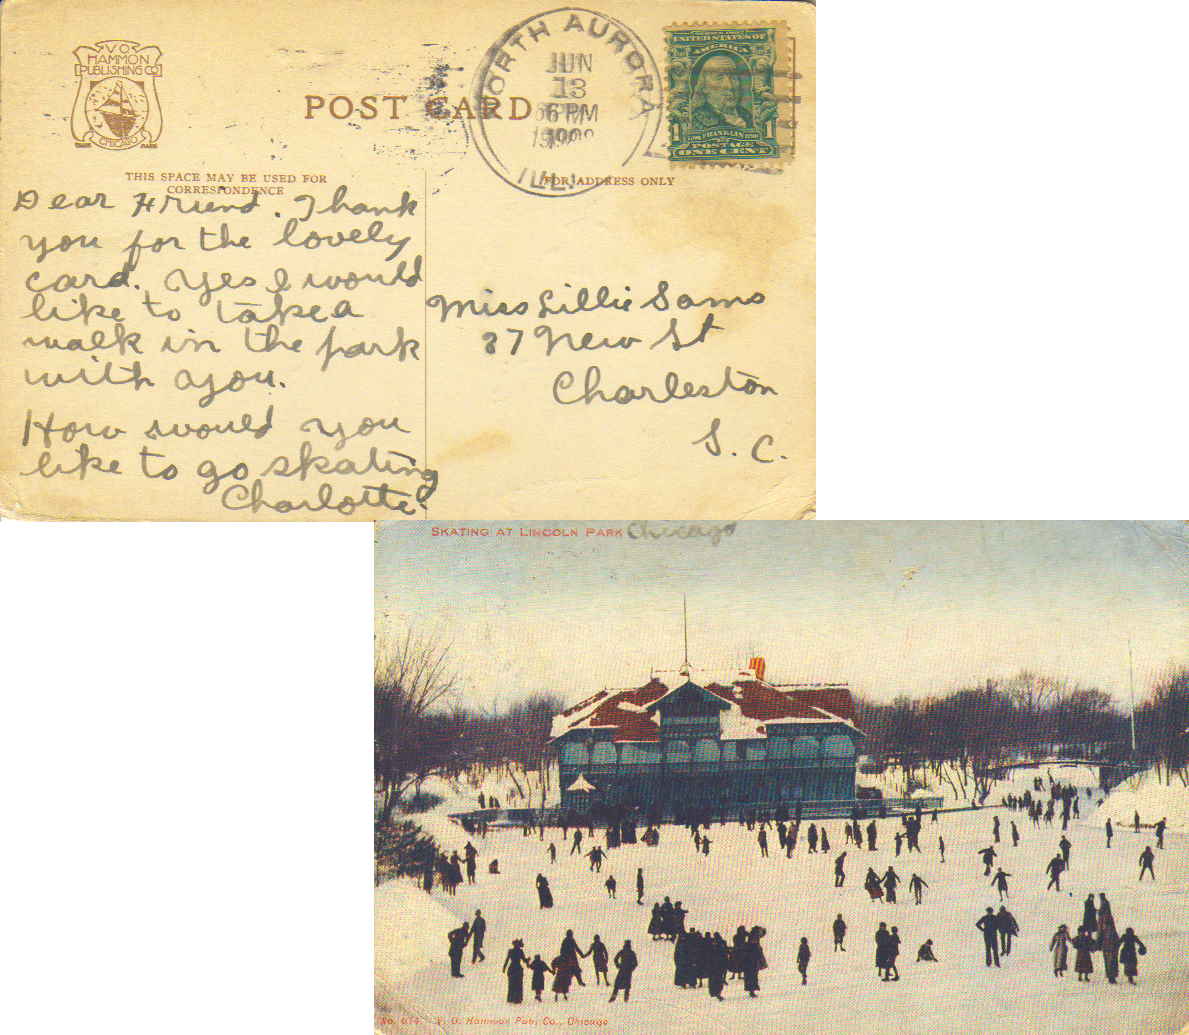 V.O.
HAMMON
PUBLISHING CO.
CHICAGO
TRADE MARK
POST CARD
NORTH AURORA
JUN
13
6 PM
ILL.
UNITED STATES OF
AMERICA
1 FRANKLIN 1
POSTAGE
ONE CENT
THIS SPACE MAY BE USED FOR
CORRESPONDENCE
FOR ADDRESS ONLY
Dear Friend. Thank
you for the lovely
card. Yes I would
like to take a
walk in the park
with you.
How would you
like to go skating
Charlotte
Miss Lillie Sams
37 New St
Charleston
S. C.
SKATING AT LINCOLN PARK Chicago
No. 614 V. O. Hammon Pub. Co., Chicago